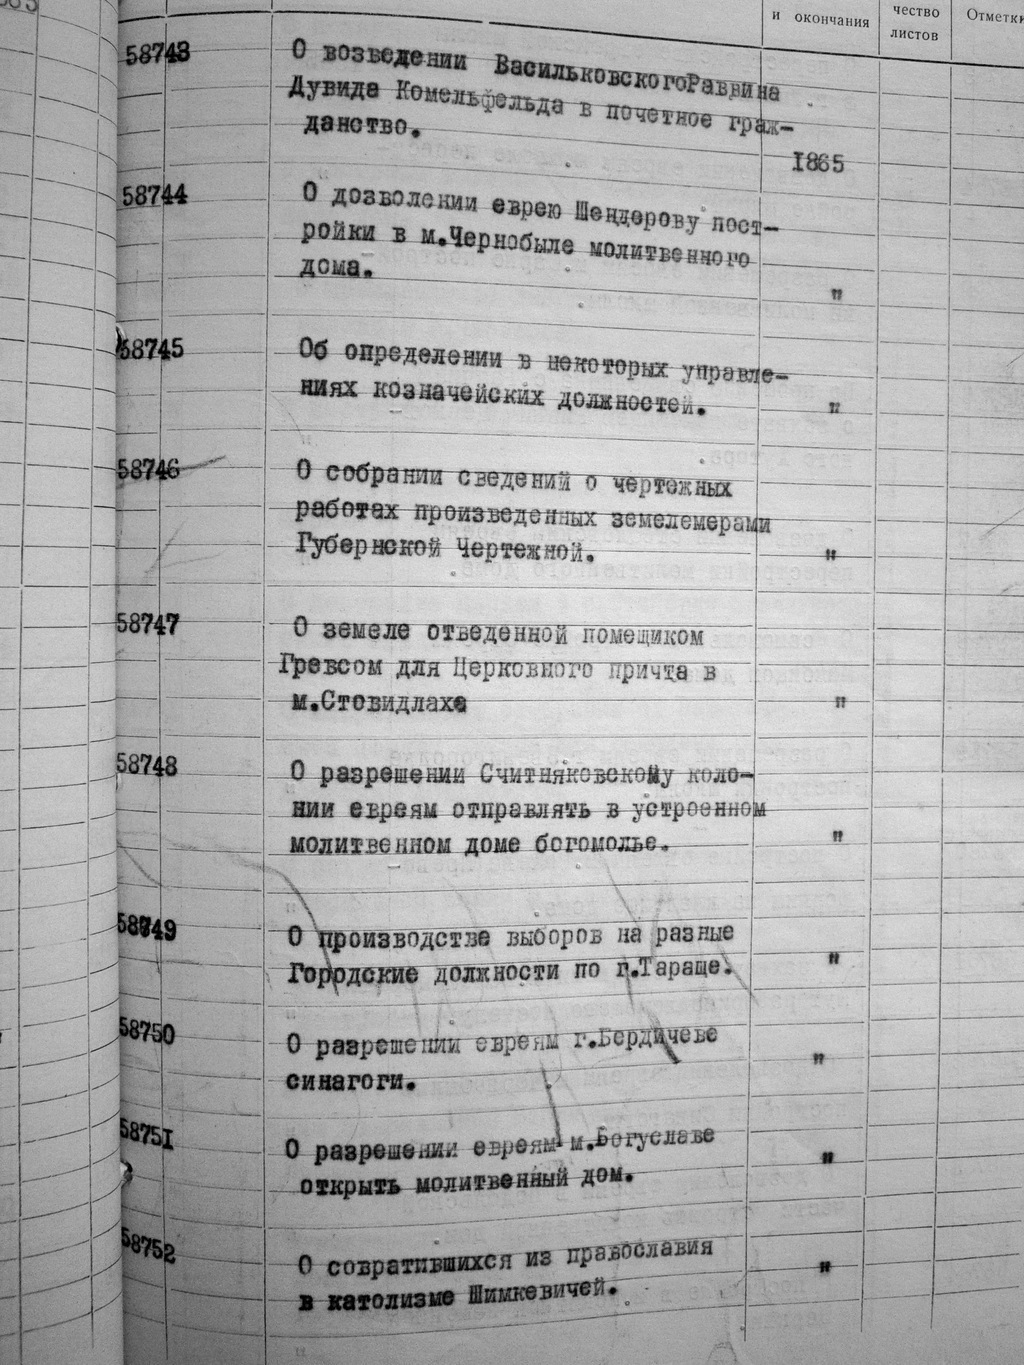 и окончания
чество
листов
Отметки
58743
О возведении ВасильковскогоРаввина
Дувида Комельфельда в почетное граж-
данство.
1865
58744
О дозволении еврею Шендерову пост-
ройки в м.Чернобыле молитвенного
дома.
"
58745
Об определении в некоторых управле-
ниях козначейских должностей.
"
58746
О собрании сведений о чертежных
работах произведенных земелемерами
Губернской Чертежной.
"
58747
О земеле отведенной помещиком
Гревсом для Церковного причта в
м.Стовидлахе
"
58748
О разрешении Считняковскому коло-
нии евреям отправлять в устроенном
молитвенном доме богомолье.
"
58749
О производстве выборов на разные
Городские должности по г.Тараще.
"
58750
О разрешении евреям г.Бердичеве
синагоги.
"
58751
О разрешении евреям м.Богуславе
открыть молитвенный дом.
"
58752
О совратившихся из православия
в католизме Шимкевичей.
"